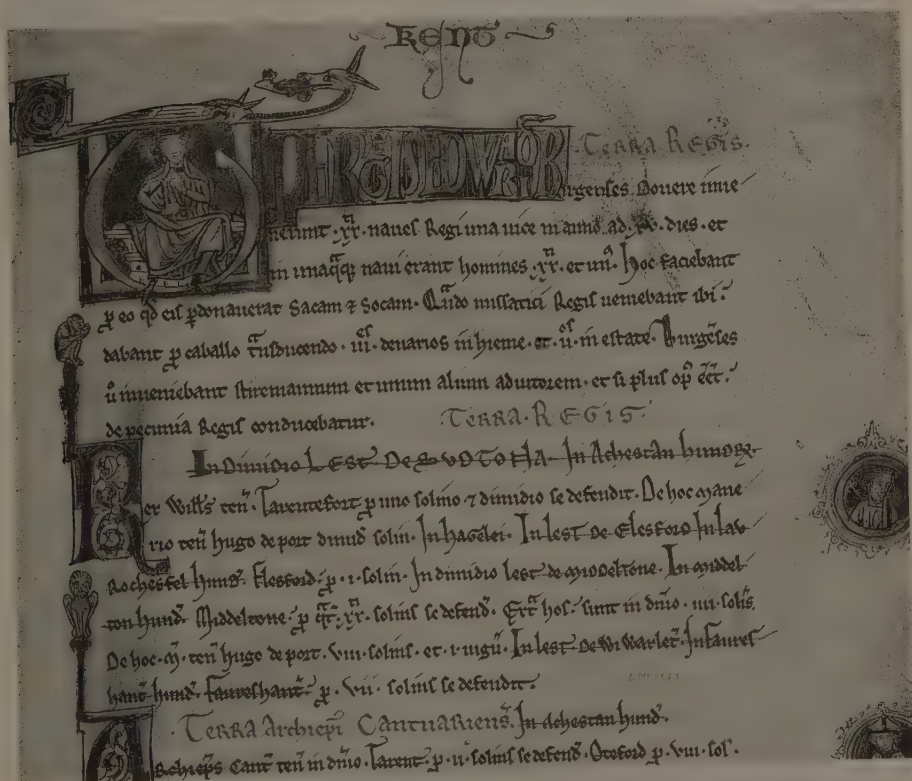 KENT
TERRA REGIS.
Burgenses Dovere inve
nerunt .xx. naves Regi una vice in anno ad .xv. dies. et
in unaq̄q; navi erant homines .xx. et un̄. Hoc faciebant
p̱ eo qđ eis p̱donaverat Sacam ⁊ Socam. Q̄do missatici Regis veniebant ibi.
dabant p̱ caballo t̄nsducendo. iii. denarios in hieme. et. ii. in estate. Burg̅ses
ū inveniebant stiremannum et unum alium adiutorem. et si plus op̄ eēt.
de pecunia Regis conducebatur. TERRA. REGIS.
In Dimidio LEST DE SVDTONA In Achestan hundr̄
Rex Wills̄ ten̄. Tarentefort p̱ uno solino ⁊ dimidio se defendit. De hoc mane
rio ten̄ hugo de port dimid̄ solin. In hagelei. In lest De Elesford In Lav
Rochesfel hund̄. Elesford. p̱ .i. solin. In dimidio lest de middeltone. In middel
ton hund̄. Middeltone. p̱ q̄t .xx. solinis se defend̄. Ext̄ hos. sunt in dn̄io. iiii. solis.
De hoc. m̄. ten̄ hugo de port. viii. solinis. et. i. iugū. In lest De Wiwarlet. In faures
hant hund̄. faureshant. p̱. vii. solinis se defendit.
TERRA Archiep̄i Cantuariens̄. In achestan hund̄.
Archiep̄s Cant ten̄ in dn̄io. Tarent. p̱. ii. solinis se defend̄. Oteford p̱. viii. sol̄.